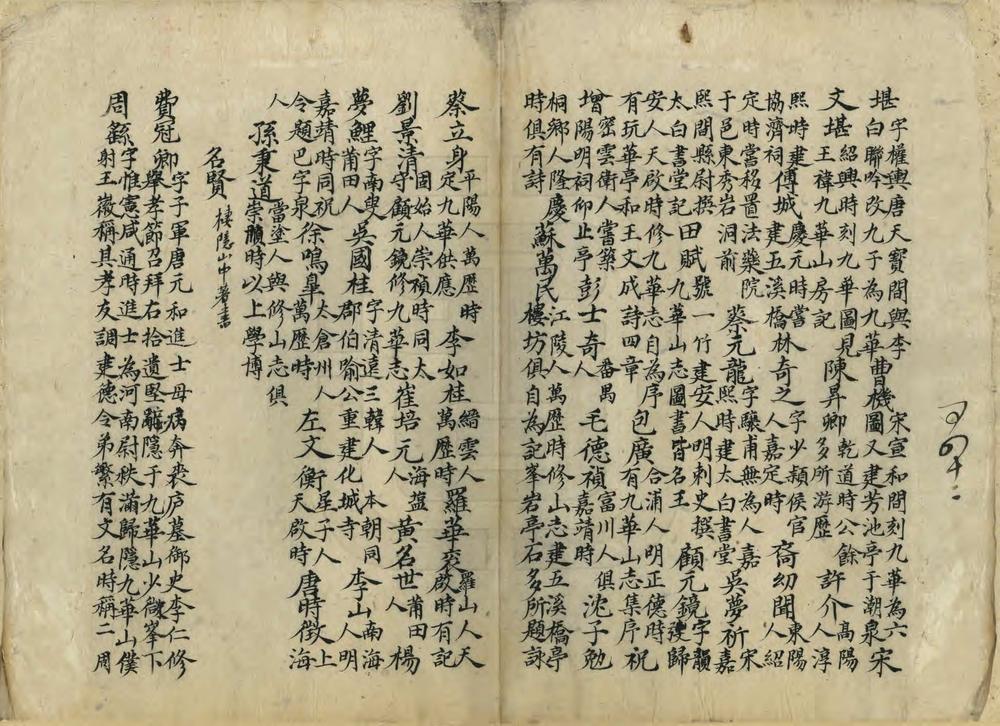 堪字權輿唐天寶間與李白聯吟改九子為九華曹機宋宣和間刻九華為六圖又建芳池亭于潮泉宋
文堪紹興時刻九華圖見王褘九華山房記陳昇卿乾道時公餘多所游歷許介高陽人淳
熙時建協濟祠傅城慶元時嘗建五溪橋林奇之字少穎侯官人嘉定時裔幼聞東陽人紹
定時嘗移置法藥院于邑東秀岩洞前蔡元龍字驤甫無為人嘉熙時建太白書堂吳夢祈宋嘉
熙間縣尉撰太白書堂記田賦號一竹建安人明刺史撰九華山志圖書皆名王顧元鏡字韻歸
安人天啟時修九華志自為序包廣合浦人明正德時有九華山志集序祝
有玩華亭和王文成詩四章
增密雲衛人嘗築陽明祠仰止亭彭士奇番禺人毛德禎富川人嘉靖時俱沈子勉
桐鄉人隆慶時俱有詩蘇萬民江陵人萬歷時修山志建五溪橋亭樓坊俱自為記峯岩亭石多所題詠
蔡立身平陽人萬歷時定九華供應李如桂縉雲人萬歷時羅華袞羅山人天啟時有記
劉景清國始人崇禎時同太守顧元鏡修九華志崔培元海盐人黃名世莆田人楊
夢鯉字南叟莆田人吳國桂字清遠三韓人本朝同郡伯喻公重建化城寺李山南海人明
嘉靖時同祝令題巴字泉徐鳴皐太倉州人萬歷時左文衡星子人天啟時唐時徴上海
人當塗人與修山志俱孫秉道崇禎時以上學博
名賢棲隱山中著書
費冠卿字子軍唐元和進士母病奔喪庐墓御史李仁修舉孝節召拜右拾遺堅辭隱于九華山少微峯下
周繇字惟憲咸通時進士為河南尉秩滿歸隱九華山僕射王徽稱其孝友調建德令弟繁有文名時稱二周